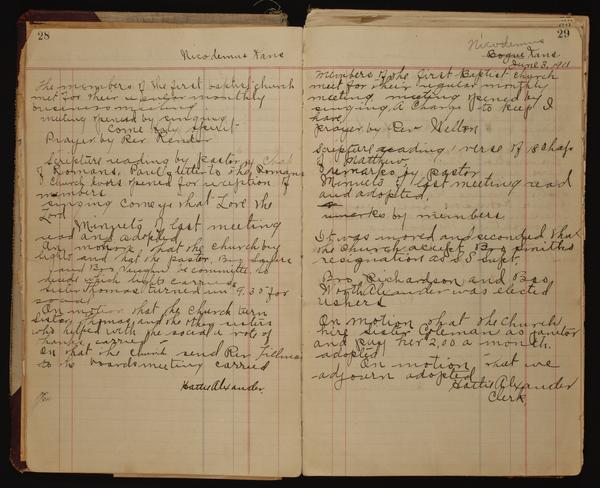 28
Nicodemus Kans
The members of the first baptist church
met for their regular monthly
business meeting
meeting opened by singing
Come holy spirit
Prayer by Rev
Scripture reading by pastor chap
of Romans, Paul's letter to the Romans
church doors opened for reception of
members
singing come ys that Love the
Lord
Minuets of last meeting
read and adopted
On motion, that the church buy
lights and that the pastor, Bro Squire
and Bro Vaughn be committee to
which lights carried
sister Thomas turned in 9.35 for
social
On motion that the church turn
sister Thomas and the other sisters
who helped with the social a vote of
thanks carried
On that the church send Rev
to the boards meeting carried
Hattie Alexander
29
Nicodemus
Bogue Kans
June 3, 1911
Members of the first Baptist church
meet for their regular monthly
meeting meeting opened by
singing, A Charge to keep I
have
prayer by Rev Welton
Scripture reading 1 verse of 18 chap
of Matthew
remarks by pastor
Minuets of last meeting read
and adopted.
remarks by members
It was moved and seconded that
the church accept Bro Smiths
resignation as S S supt.
Bro Richardson and Bro
Worth Alexander was elected
ushers
On motion that the church
hire sister Coleman as janitor
and pay her 2,00 a month.
adopted
On motion that we
adjourn adopted
Hattie Alexander
Clerk,